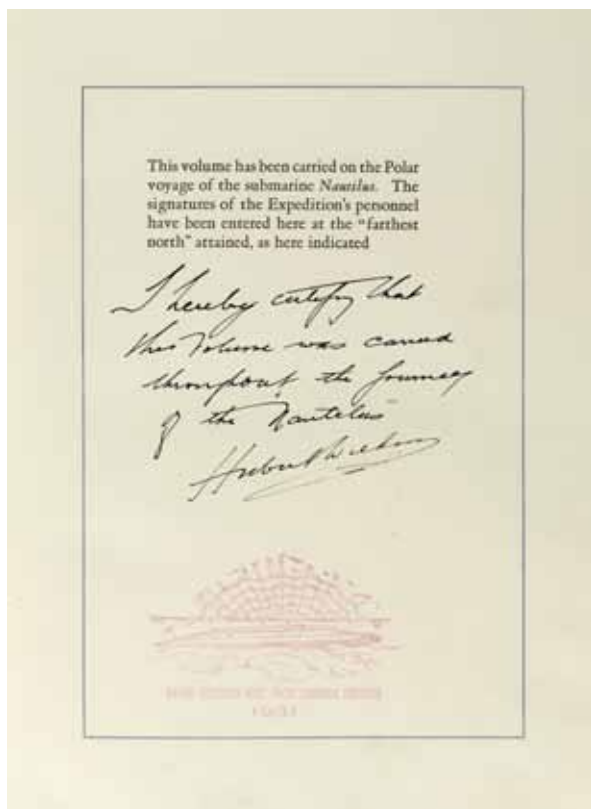 This volume has been carried on the Polar
voyage of the submarine Nautilus. The
signatures of the Expedition's personnel
have been entered here at the "farthest
north" attained, as here indicated
I hereby certify that
this Volume was carried
throughout the Journey
of the Nautilus
Hubert Wilkins
1931